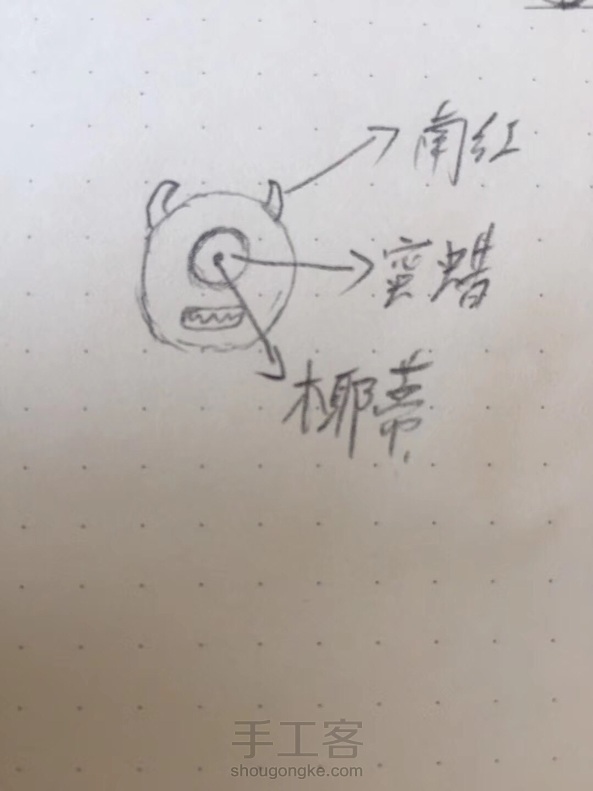 南红
蜜蜡
椰蒂
手工客
shougongke.com